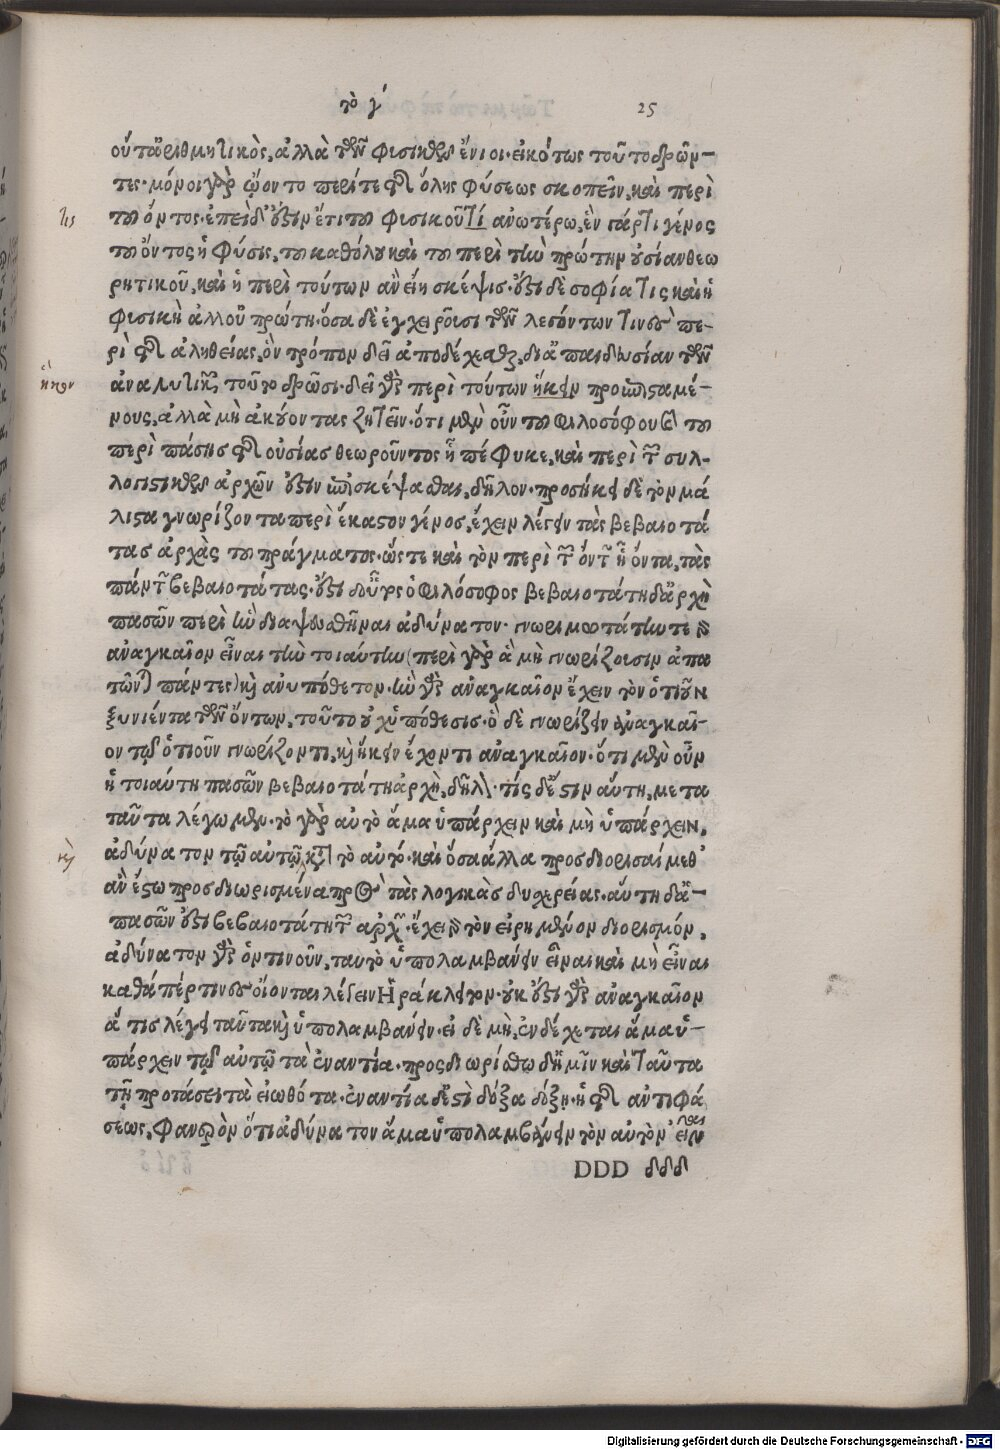 τὸ γ´ 25
οὔτ' ἀριθμητικὸς, ἀλλὰ τῶν φυσικῶν ἔνιοι. εἰκότως τοῦτο δρῶν-
τες. μόνοι γὰρ ᾤοντο περί τε τῆς ὅλης φύσεως σκοπεῖν, καὶ περὶ
τοῦ ὄντος. ἐπεὶ δ' ἔστιν ἔτι τοῦ φυσικοῦ τί ἀνωτέρω, ἓν γάρ τι γένος
τοῦ ὄντος ἡ φύσις, τοῦ καθόλου καὶ τοῦ περὶ τὴν πρώτην οὐσίαν θεω
ρητικοῦ, καὶ ἡ περὶ τούτων ἂν εἴη σκέψις. ἔστι δὲ σοφία τις καὶ ἡ
φυσικὴ ἀλλ' οὐ πρώτη. ὅσα δὲ ἐγχειροῦσι τῶν λεγόντων τινὲς περ-
ρὶ τῆς ἀληθείας, ὃν τρόπον δεῖ ἀποδέχεσθαι, δι' ἀπαιδευσίαν τῶν
ἀναλυτικῶν τοῦτο δρῶσι. δεῖ γὰρ περὶ τούτων ἥκειν προεπισταμέ-
νους, ἀλλὰ μὴ ἀκούοντας ζητεῖν. ὅτι μὲν οὖν τοῦ φιλοσόφου καὶ τοῦ
περὶ πάσης τῆς οὐσίας θεωροῦντος ᾗ πέφυκε, καὶ περὶ τῶν συλ-
λογιστικῶν ἀρχῶν ἔστιν ἐπισκέψασθαι, δῆλον. προσήκει δὲ τὸν μά
λιστα γνωρίζοντα περὶ ἕκαστον γένος, ἔχειν λέγειν τὰς βεβαιοτά
τας ἀρχὰς τοῦ πράγματος. ὥστε καὶ τὸν περὶ τῶν ὄντων ᾗ ὄντα, τὰς
πάντων βεβαιοτάτας. ἔστι δ' οὗτος ὁ φιλόσοφος βεβαιοτάτη δ' ἀρχὴ
πασῶν περὶ ἣν διαψευσθῆναι ἀδύνατον. γνωριμωτάτην τε γὰρ
ἀναγκαῖον εἶναι τὴν τοιαύτην (περὶ γὰρ ἃ μὴ γνωρίζουσιν ἀπα
τῶνται πάντες) καὶ ἀνυπόθετον. ἣν γὰρ ἀναγκαῖον ἔχειν τὸν ὁτιοῦν
ξυνιέντα τῶν ὄντων, τοῦτο οὐχ ὑπόθεσις. ὃ δὲ γνωρίζειν ἀναγκαῖ-
ον τῷ ὁτιοῦν γνωρίζοντι, καὶ ἥκειν ἔχοντι ἀναγκαῖον. ὅτι μὲν οὖν
ἡ τοιαύτη πασῶν βεβαιοτάτη ἀρχὴ, δῆλον. τίς δ' ἔστιν αὕτη, μετα
ταῦτα λέγωμεν. τὸ γὰρ αὐτὸ ἅμα ὑπάρχειν καὶ μὴ ὑπάρχειν,
ἀδύνατον τῷ αὐτῷ κατὰ τὸ αὐτό. καὶ ὅσα ἄλλα προσδιορισαίμεθ'
ἂν ἔστω προσδιωρισμένα πρὸς τὰς λογικὰς δυχερείας. αὕτη δ' ἁ-
πασῶν ἔστι βεβαιοτάτη τῶν ἀρχῶν. ἔχει γὰρ τὸν εἰρημένον διορισμόν,
ἀδύνατον γὰρ ὁντινοῦν, ταυτὸ ὑπολαμβάνειν εἶναι καὶ μὴ εἶναι
καθάπέρ τινες οἴονται λέγειν Ἡράκλειτον. οὐκ ἔστι γὰρ ἀναγκαῖον
ἅ τις λέγει ταῦτα καὶ ὑπολαμβάνειν. εἰ δὲ μὴ, ἐνδέχεται ἅμα ὑ-
πάρχειν τῷ αὐτῷ τὰ ἐναντία. προςδιωρίσθω δ' ἡμῖν καὶ ταῦτα
τῇ προτάσει τὰ εἰωθότα. ἐναντία δ' ἐστὶ δόξα δόξῃ. ἡ τῆς ἀντιφά
σεως, φανερὸν ὅτι ἀδύνατον ἅμα ὑπολαμβάνειν τὸν αὐτὸν εἶναι
DDD δδδ
τις